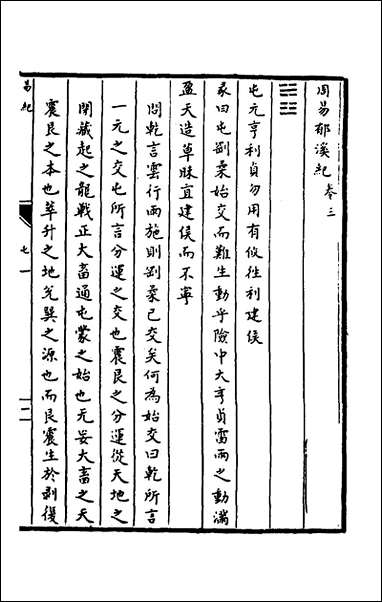 周易郁溪紀卷三
屯元亨利貞勿用有攸往利建侯
彖曰屯剛柔始交而難生動乎險中大亨貞雷雨之動滿
盈天造草昧宜建侯而不寧
問乾言雲行雨施則剛柔已交矣何為始交曰乾所言
一元之交屯所言分運之交也震艮之分運從天地之
閉藏起之龍戰正大畜通屯蒙之始也无妄大畜之天
震艮之本也萃升之地兌巽之源也而艮震生於剥復
易紀
屯一